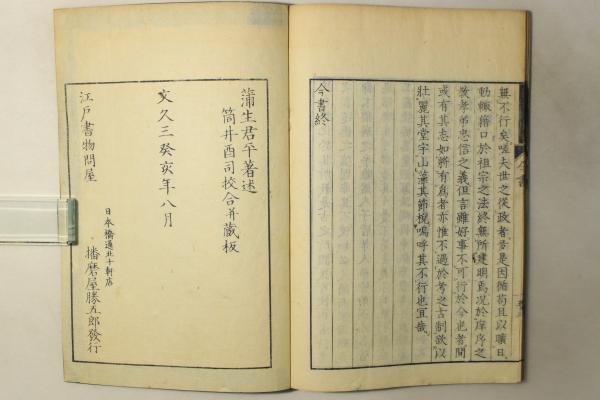 無不行矣嗟夫世之從政者苦是因循苟且以曠日
動輙藉口於祖宗之法終無所建明焉况於庠序之
敎孝弟忠信之義但言雖好事不可行於今也者間
或有其志如辦有爲者亦惟不過於考之古制欲以
壯麗其堂宇山藻其節梲嗚呼其不行也宜哉
今書終
今書
蒲生君平著述
筒井酉司校合并藏板
文久三癸亥年八月
江戸書物問屋
日本橋通北十軒店
播磨屋勝五郎發行